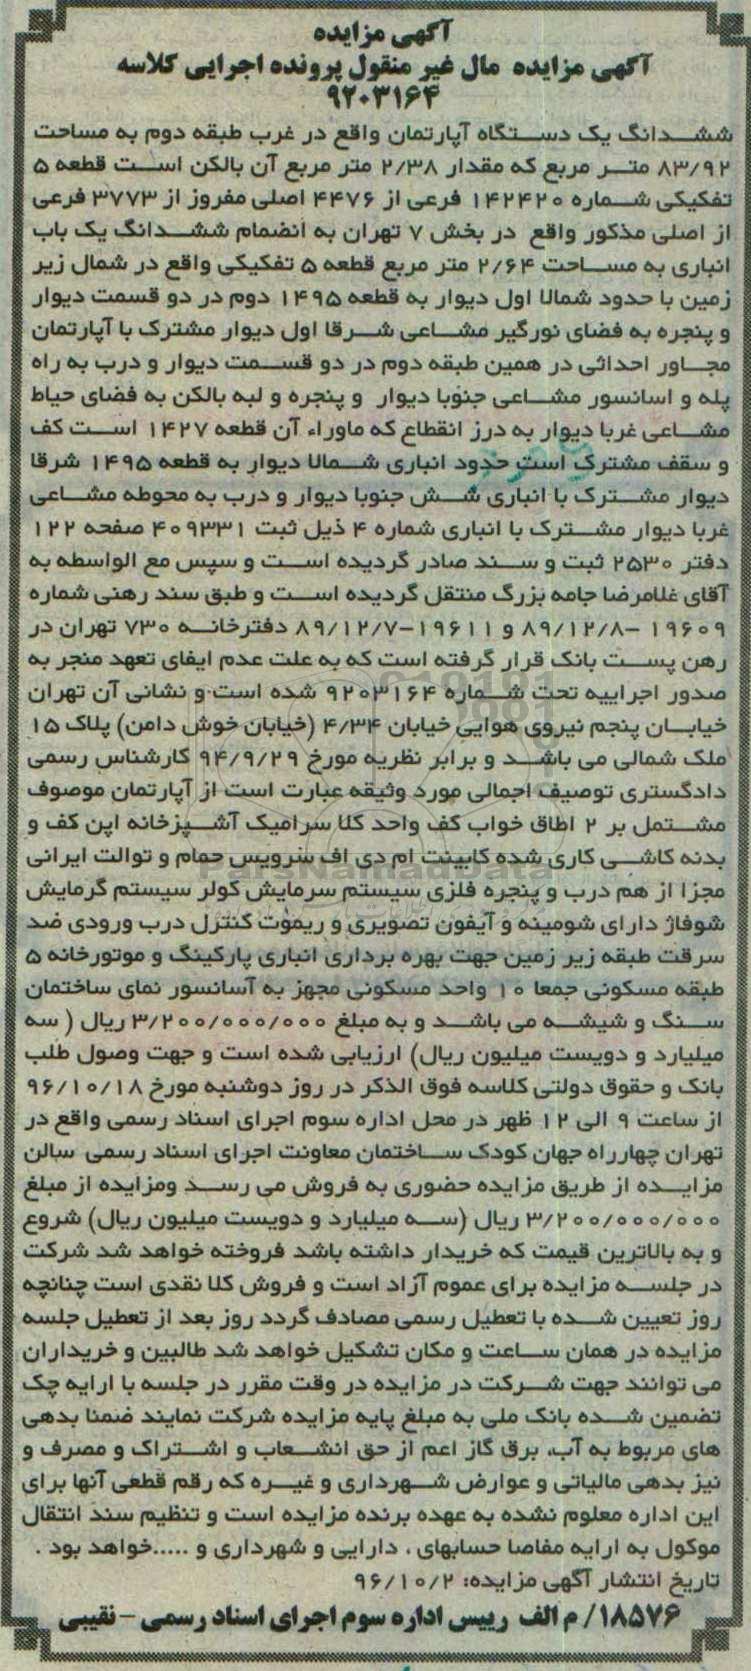 آگهی مزایده
آگهی مزایده مال غیر منقول پرونده اجرایی کلاسه
۹۲۰۳۱۶۴
ششدانگ یک دستگاه آپارتمان واقع در غرب طبقه دوم به مساحت
۸۳/۹۲ متر مربع که مقدار ۲/۳۸ متر مربع آن بالکن است قطعه ۵
تفکیکی شماره ۱۴۲۴۲۰ فرعی از ۴۴۷۶ اصلی مفروز از ۳۷۷۳ فرعی
از اصلی مذکور واقع در بخش ۷ تهران به انضمام ششدانگ یک باب
انباری به مساحت ۲/۶۴ متر مربع قطعه ۵ تفکیکی واقع در شمال زیر
زمین با حدود شمالا اول دیوار به قطعه ۱۴۹۵ دوم در دو قسمت دیوار
و پنجره به فضای نورگیر مشاعی شرقا اول دیوار مشترک با آپارتمان
مجاور احداثی در همین طبقه دوم در دو قسمت دیوار و درب به راه
پله و اسانسور مشاعی جنوبا دیوار و پنجره و لبه بالکن به فضای حیاط
مشاعی غربا دیوار به درز انقطاع که ماوراء آن قطعه ۱۴۲۷ است کف
و سقف مشترک است حدود انباری شمالا دیوار به قطعه ۱۴۹۵ شرقا
دیوار مشترک با انباری شش جنوبا دیوار و درب به محوطه مشاعی
غربا دیوار مشترک با انباری شماره ۴ ذیل ثبت ۴۰۹۳۳۱ صفحه ۱۲۲
دفتر ۲۵۳۰ ثبت و سند صادر گردیده است و سپس مع الواسطه به
آقای غلامرضا جامه بزرگ منتقل گردیده است و طبق سند رهنی شماره
۱۹۶۰۹ -۸۹/۱۲/۸ و ۱۹۶۱۱-۸۹/۱۲/۷ دفترخانه ۷۳۰ تهران در
رهن پست بانک قرار گرفته است که به علت عدم ایفای تعهد منجر به
صدور اجراییه تحت شماره ۹۲۰۳۱۶۴ شده است و نشانی آن تهران
خیابان پنجم نیروی هوایی خیابان ۴/۳۴ (خیابان خوش دامن) پلاک ۱۵
ملک شمالی می باشد و برابر نظریه مورخ ۹۴/۹/۲۹ کارشناس رسمی
دادگستری توصیف اجمالی مورد وثیقه عبارت است از آپارتمان موصوف
مشتمل بر ۲ اطاق خواب کف واحد کلا سرامیک آشپزخانه اپن کف و
بدنه کاشی کاری شده کابینت ام دی اف سرویس حمام و توالت ایرانی
مجزا از هم درب و پنجره فلزی سیستم سرمایش کولر سیستم گرمایش
شوفاژ دارای شومینه و آیفون تصویری و ریموت کنترل درب ورودی ضد
سرقت طبقه زیر زمین جهت بهره برداری انباری پارکینگ و موتورخانه ۵
طبقه مسکونی جمعا ۱۰ واحد مسکونی مجهز به آسانسور نمای ساختمان
سنگ و شیشه می باشد و به مبلغ ۳/۲۰۰/۰۰۰/۰۰۰ ریال ( سه
میلیارد و دویست میلیون ریال) ارزیابی شده است و جهت وصول طلب
بانک و حقوق دولتی کلاسه فوق الذکر در روز دوشنبه مورخ ۹۶/۱۰/۱۸
از ساعت ۹ الی ۱۲ ظهر در محل اداره سوم اجرای اسناد رسمی واقع در
تهران چهارراه جهان کودک ساختمان معاونت اجرای اسناد رسمی سالن
مزایده از طریق مزایده حضوری به فروش می رسد ومزایده از مبلغ
۳/۲۰۰/۰۰۰/۰۰۰ ریال (سه میلیارد و دویست میلیون ریال) شروع
و به بالاترین قیمت که خریدار داشته باشد فروخته خواهد شد شرکت
در جلسه مزایده برای عموم آزاد است و فروش کلا نقدی است چنانچه
روز تعیین شده با تعطیل رسمی مصادف گردد روز بعد از تعطیل جلسه
مزایده در همان ساعت و مکان تشکیل خواهد شد طالبین و خریداران
می توانند جهت شرکت در مزایده در وقت مقرر در جلسه با ارایه چک
تضمین شده بانک ملی به مبلغ پایه مزایده شرکت نمایند ضمنا بدهی
های مربوط به آب، برق گاز اعم از حق انشعاب و اشتراک و مصرف و
نیز بدهی مالیاتی و عوارض شهرداری و غیره که رقم قطعی آنها برای
این اداره معلوم نشده به عهده برنده مزایده است و تنظیم سند انتقال
موکول به ارایه مفاصا حسابهای ، دارایی و شهرداری و .....خواهد بود .
تاریخ انتشار آگهی مزایده: ۹۶/۱۰/۲
۱۸۵۷۶/ م الف رییس اداره سوم اجرای اسناد رسمی - نقیبی
ParsNamadData